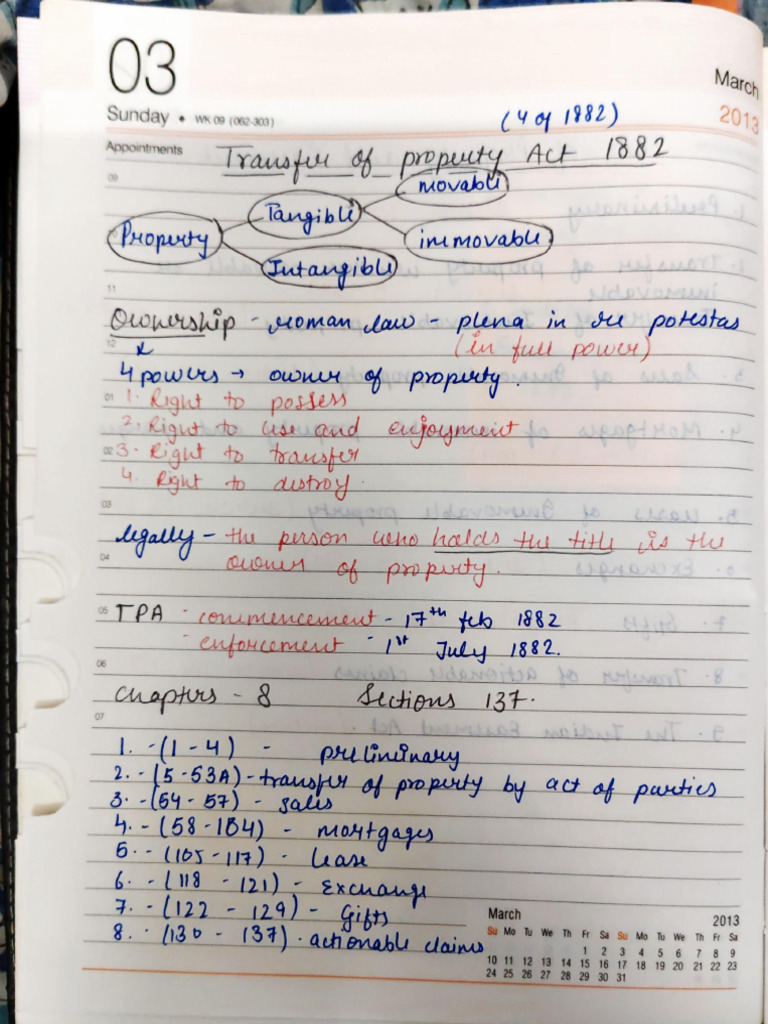 03
March
Sunday • WK 09 (062-303)
2013
(4 of 1882)
Appointments
Transfer of property Act 1882
09
movable
Tangible
Property
immovable
Intangible
11
Ownership - Roman law - plena in re potestas
12
(in full power)
4 powers → owner of property.
01
1. Right to possess
2. Right to use and enjoyment
02
3. Right to transfer
4. Right to destroy.
03
legally - the person who holds the title is the
04
owner of property.
05
TPA - commencement - 17th feb 1882
- enforcement - 1st July 1882.
06
Chapters - 8 Sections 137.
07
1. - (1 - 4) - preliminary
2. - (5 - 53A) - transfer of property by act of parties
3. - (54 - 57) - sales
4. - (58 - 104) - mortgages
5. - (105 - 117) - Lease
6. - (118 - 121) - Exchange
7. - (122 - 129) - Gifts
8. - (130 - 137) - actionable claims
March 2013
Su Mo Tu We Th Fr Sa Su Mo Tu We Th Fr Sa
1 2 3 4 5 6 7 8 9
10 11 12 13 14 15 16 17 18 19 20 21 22 23
24 25 26 27 28 29 30 31